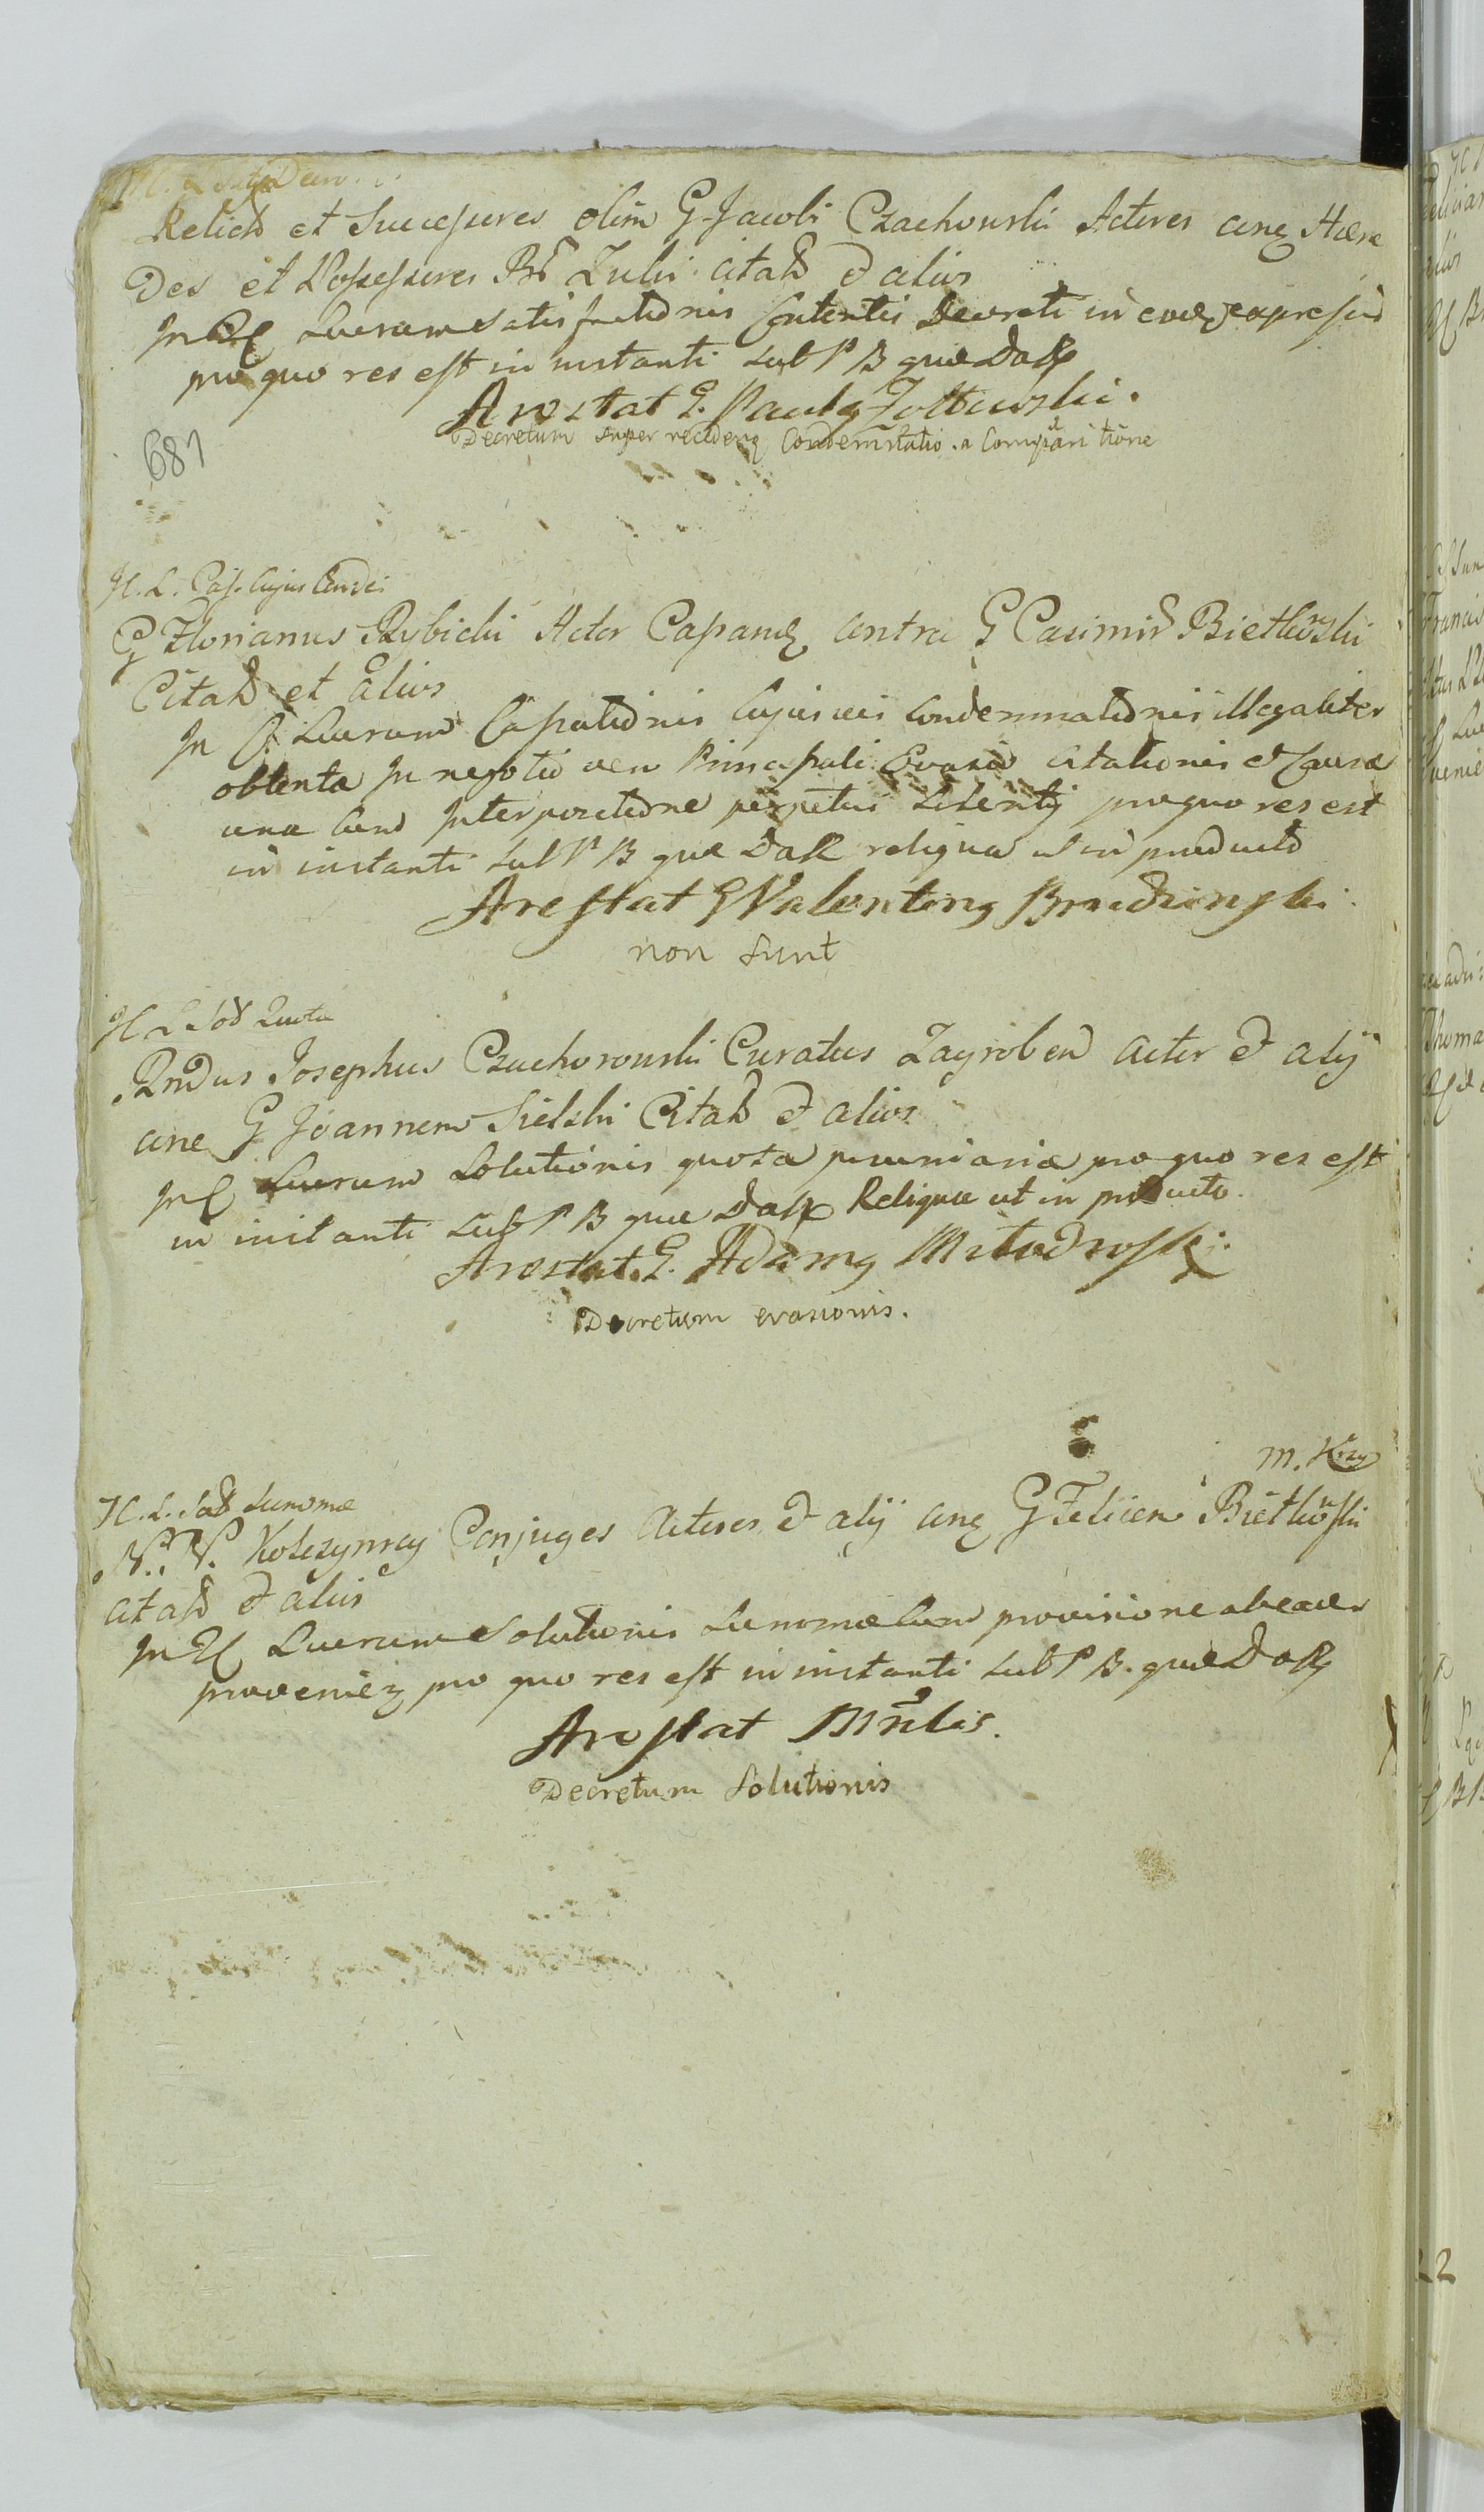 H. L. Satis Decr.
Relict et Successores olim G Jacobi Czachowski Actores cone Hære
des et Possessores Br Zuki citat et alios
In Luerum Satisfactionis Contentis Decreti in eodem expressis
pro quo res est in instanti sub P B quæ Dass
Arestat G. Paulg Zoltowski.
Decretum super recedeng Condemnatio. a Comparitione
681
H. L. Cass. cujus Condei
G Florianus Rybicki Actor Cassang contra G Casimir Bietkowski
Citat et alios
In Luerum Cassationis cujusvis condemnationis illegaliter
obtenta In negotio vero Principali Evasio citationis et Causæ
una cum Interpositione perpetui silentij pro quo res est
in instanti sub P B quæ Dass reliqua ut in producto
Arestat G Valenting Brudzinski.
non sunt
H L Sol Quota
Rndus Josephus Czachorowski Curatus Zagroben actor et alij
cone G Joannem Sielski Citat et alios
In Luerum Solutionis quota pecuniariæ pro quo res est
in instanti sub P B quæ Dass Reliqua ut in producto.
Arestat. G. Adamg Mlodowski.
Decretum evasionis.
M. Krzy
H. L. Sol summæ
N. N. Kolczynscy Conjuges Actores et alij cone G Felicem Bietkowski
citat et alios
In Luerum Solutionis summæ cum provisione ab ea
provenieg pro quo res est in instanti sub P B. quæ Dass
Arestat Mnlis.
Decretum Solutionis